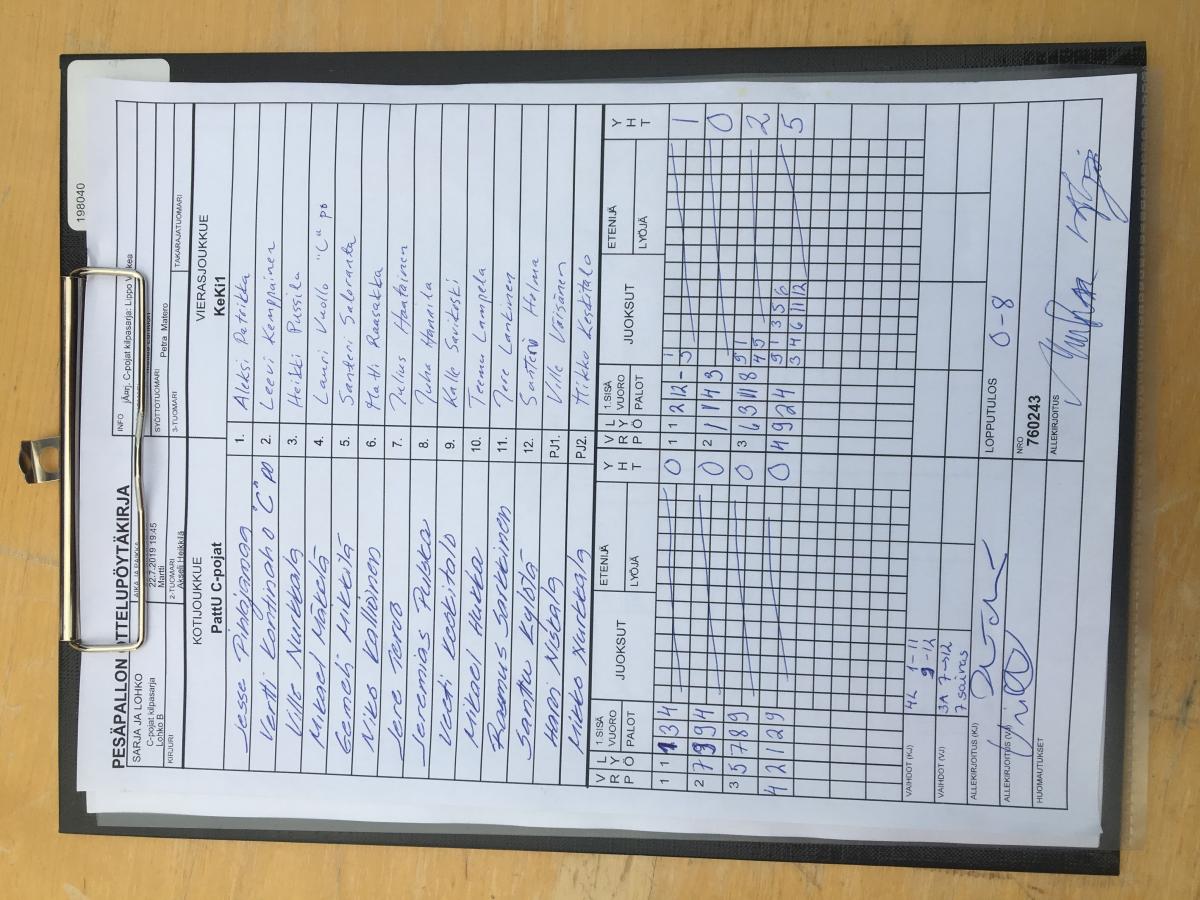 198040
PESÄPALLON OTTELUPÖYTÄKIRJA
SARJA JA LOHKO
C-pojat kilpasarja
Lohko B
AIKA JA PAIKKA
22.7.2019 19.45
Martti
INFO
jÄarj. C-pojat kilpasarja: Lippo
KIRJURI
2-TUOMARI
Akseli Heikkilä
SYÖTTÖTUOMARI
Petra Matero
3-TUOMARI
TAKARAJATUOMARI
KOTIJOUKKUE
PattU C-pojat
VIERASJOUKKUE
KeKi1
Jesse Pihlajamaa 1. Aleksi Patrikka
Vertti Kontinaho "C" PO 2. Leevi Kemppainen
Ville Nurkkala 3. Heikki Pussila
Mikael Mäkelä 4. Lauri Vuollo "C" po
Eemeli Mikkilä 5. Santeri Saloranta
Niko Kallioinen 6. Matti Raasakka
Jere Tervo 7. Julius Haatainen
Jeremias Pulkka 8. Juho Hannila
Veeti Koskitalo 9. Kalle Savikoski
Mikael Hukka 10. Teemu Lampela
Rasmus Sarkkinen 11. Jere Lankinen
Santtu Kylisto 12. Santeri Holma
Harri Niskala PJ1. Ville Väisänen
Mikko Nurkkala PJ2. Mikko Keskitalo
V L
R Y
P Ö
1.SISÄ
VUORO
PALOT
JUOKSUT
ETENIJÄ
LYÖJÄ
Y
H
T
V L
R Y
P Ö
1.SISÄ
VUORO
PALOT
JUOKSUT
ETENIJÄ
LYÖJÄ
Y
H
T
1 1 1 3 4 0 1 1 2 12 - 1
2 7 9 4 0 2 1 1 4 3 0
3 5 7 8 9 0 3 6 3 11 8 2
4 2 12 9 0 4 9 2 4 5
VAIHDOT (KJ)
4L 1-11
9-12
VAIHDOT (VJ)
3A 7->12
7 sairas
ALLEKIRJOITUS (KJ)
ALLEKIRJOITUS (VJ)
LOPPUTULOS
0-8
HUOMAUTUKSET
NRO
760243
ALLEKIRJOITUS